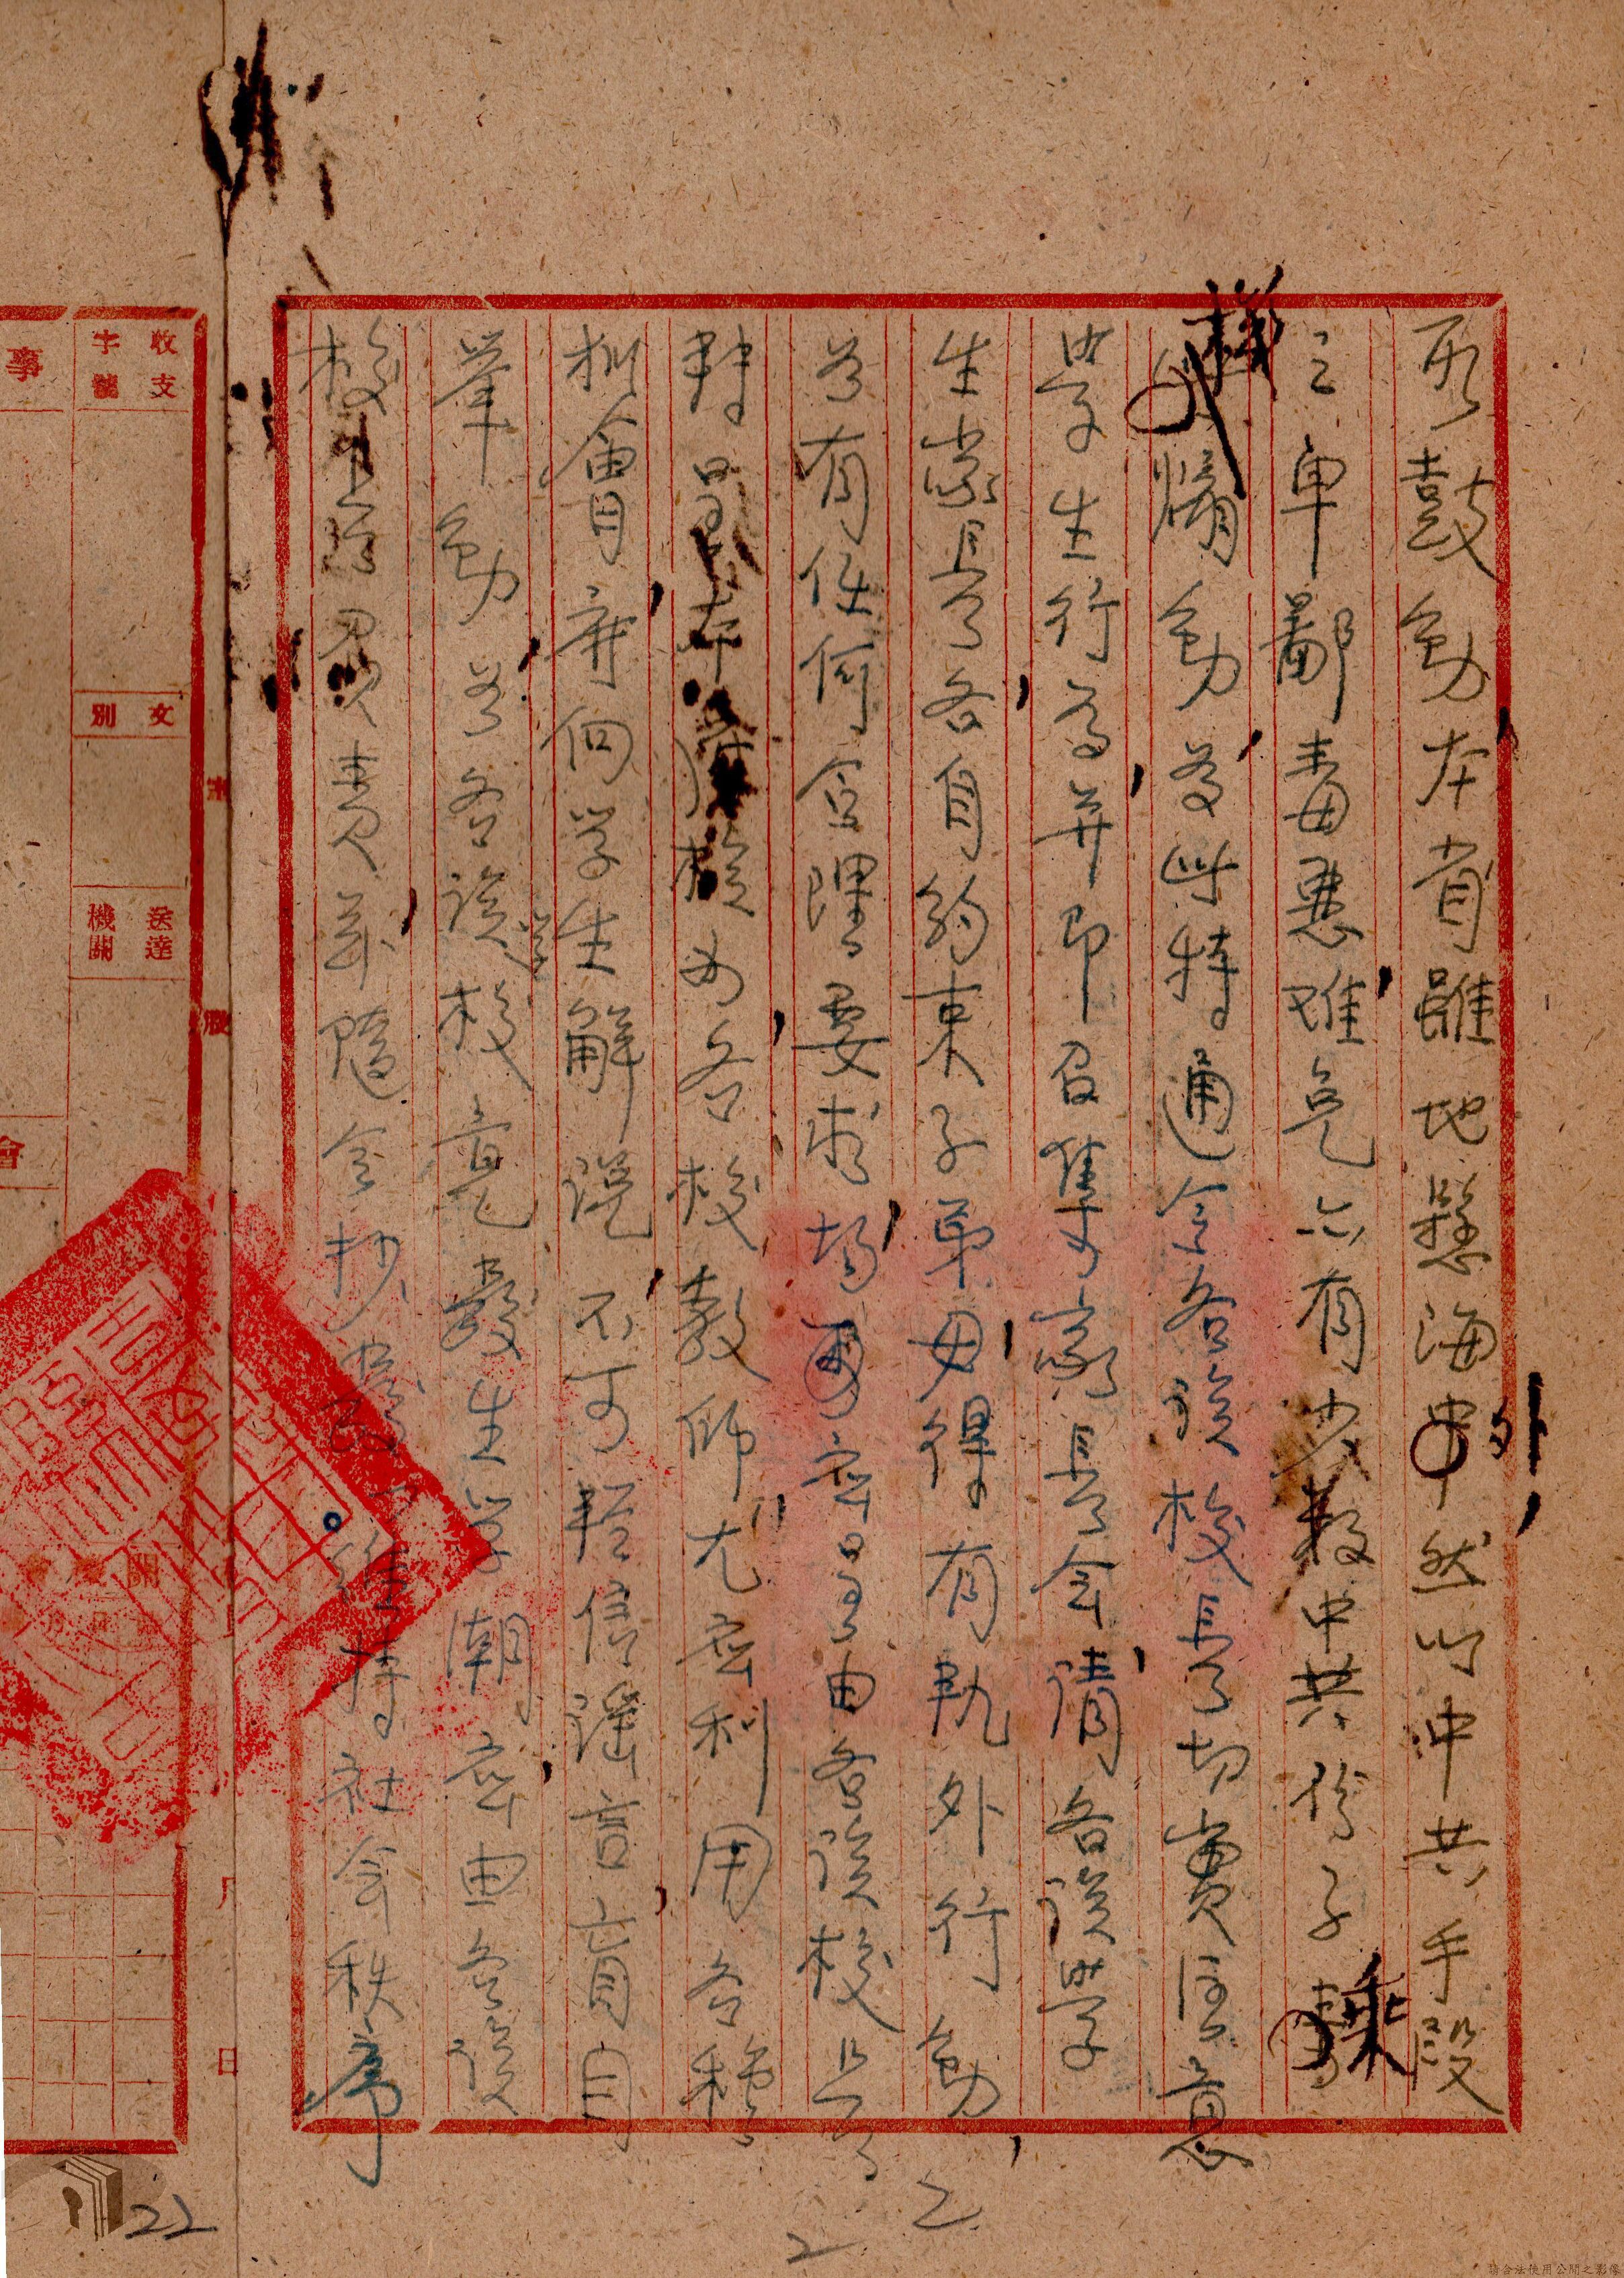 所鼓動本省雖地懸海外然以中共手段
之卑鄙毒惡難免亦有少數中共份子乘
機煽動為此特通令各該校長切實注意
學生行為并即召集家長會議各該學
生家長各自約束子弟毋得有軌外行動
如有任何合理要求均可密呈由各該校長
轉呈本府核办各校教師尤應利用各種
機會剴向學生解說不可輕信謠言盲目
舉動如各該學校竟發生學潮應由各該
校長負責并隨令抄發維持社會秩序
收支
字號
文
別
送達
機關
事
會
月
日
22